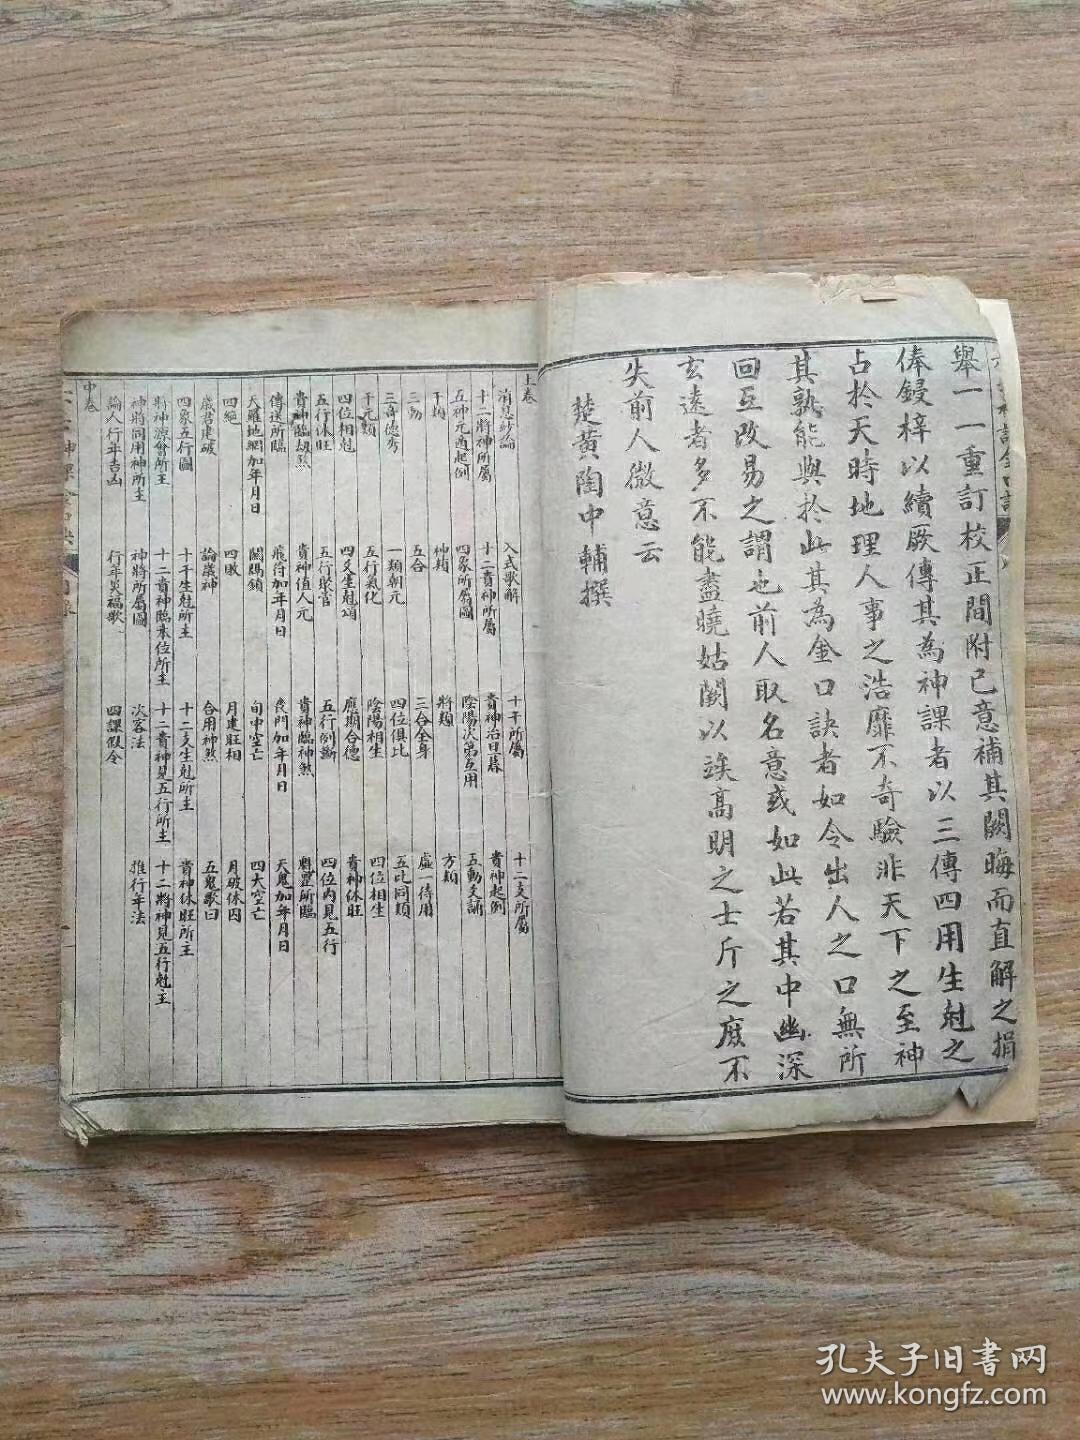 舉一一重訂校正間附己意補其闕晦而直解之捐
俸鋟梓以續厥傳其為神課者以三傳四用生尅之
占於天時地理人事之浩靡不奇驗非天下之至神
其孰能與於此其為金口訣者如令出人之口無所
回互改易之謂也前人取名意或如此若其中幽深
玄遠者多不能盡曉姑闕以竢高明之士斤之庶不
失前人微意云
楚黃陶中輔撰
上卷
消息妙論 入式歌解 十干所屬 十二支所屬
十二將神所屬 十二貴神所屬 貴神治旦暮 貴神起例
五神元遁起例 四象所屬圖 陰陽次第互用 五動爻誦
干類 神類 將類 方類
三動 五合 三合全身 虛一待用
三奇德秀 一類朝元 四位俱比 五比同類
干元類 五行氣化 陰陽相生 四位相生
四位相尅 四爻生尅頌 應期合德 貴神休旺
五行休旺 五行聚官 五行例斷 四位內見五行
貴神臨劫煞 貴神值人元 貴神臨神煞 魁罡所臨
傳送所臨 飛符加年月日 喪門加年月日 天鬼加年月日
天羅地網加年月日 關隔鎖 旬中空亡 四大空亡
四絕 四敗 月建旺相 月破休囚
歲君建破 論歲神 合用神煞 五鬼歌曰
四象五行圖 十干生尅所主 十二支生尅所主 貴神休旺所主
將神旅會所主 十二貴神臨本位所主 十二貴神見五行所主 十二將神見五行尅主
神將同用神所主 神將所屬圖 次客法 推行年法
論人行年吉凶 行年災福歌 四課假令
中卷
孔夫子旧書网
www.kongfz.com